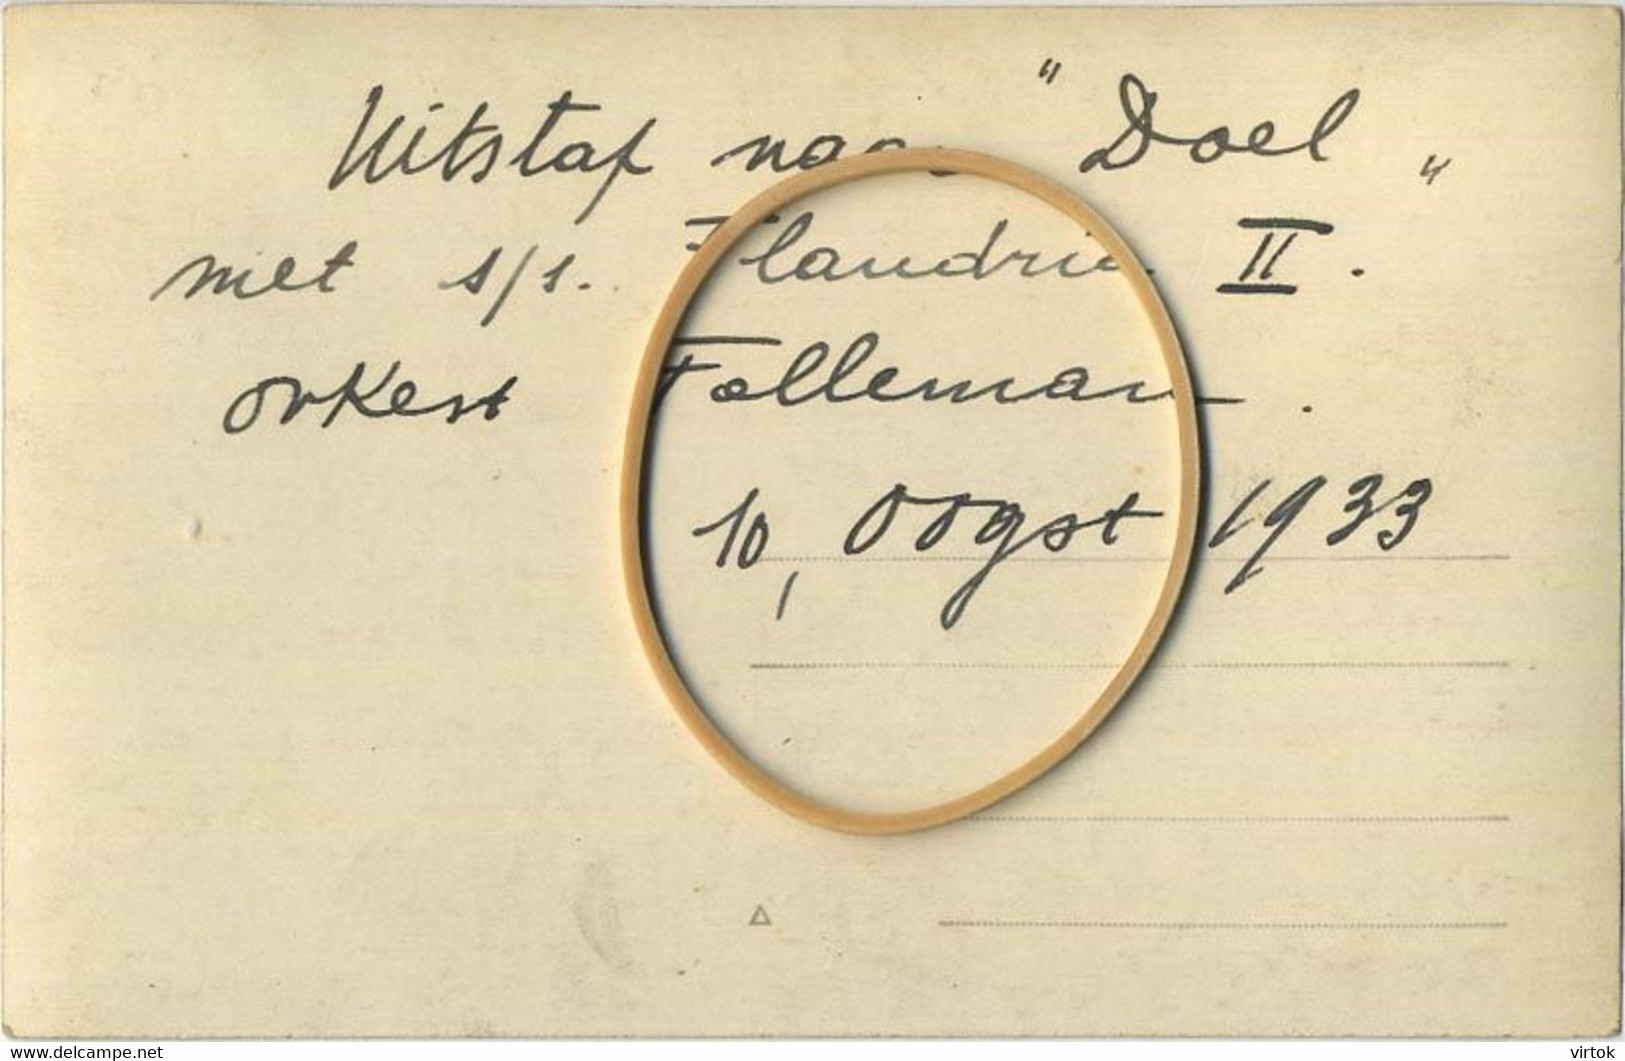 Uitstap naar "Doel"
met s/s. Flandria II.
orkest Folleman.
10, Oogst 1933
delcampe.net
virtok